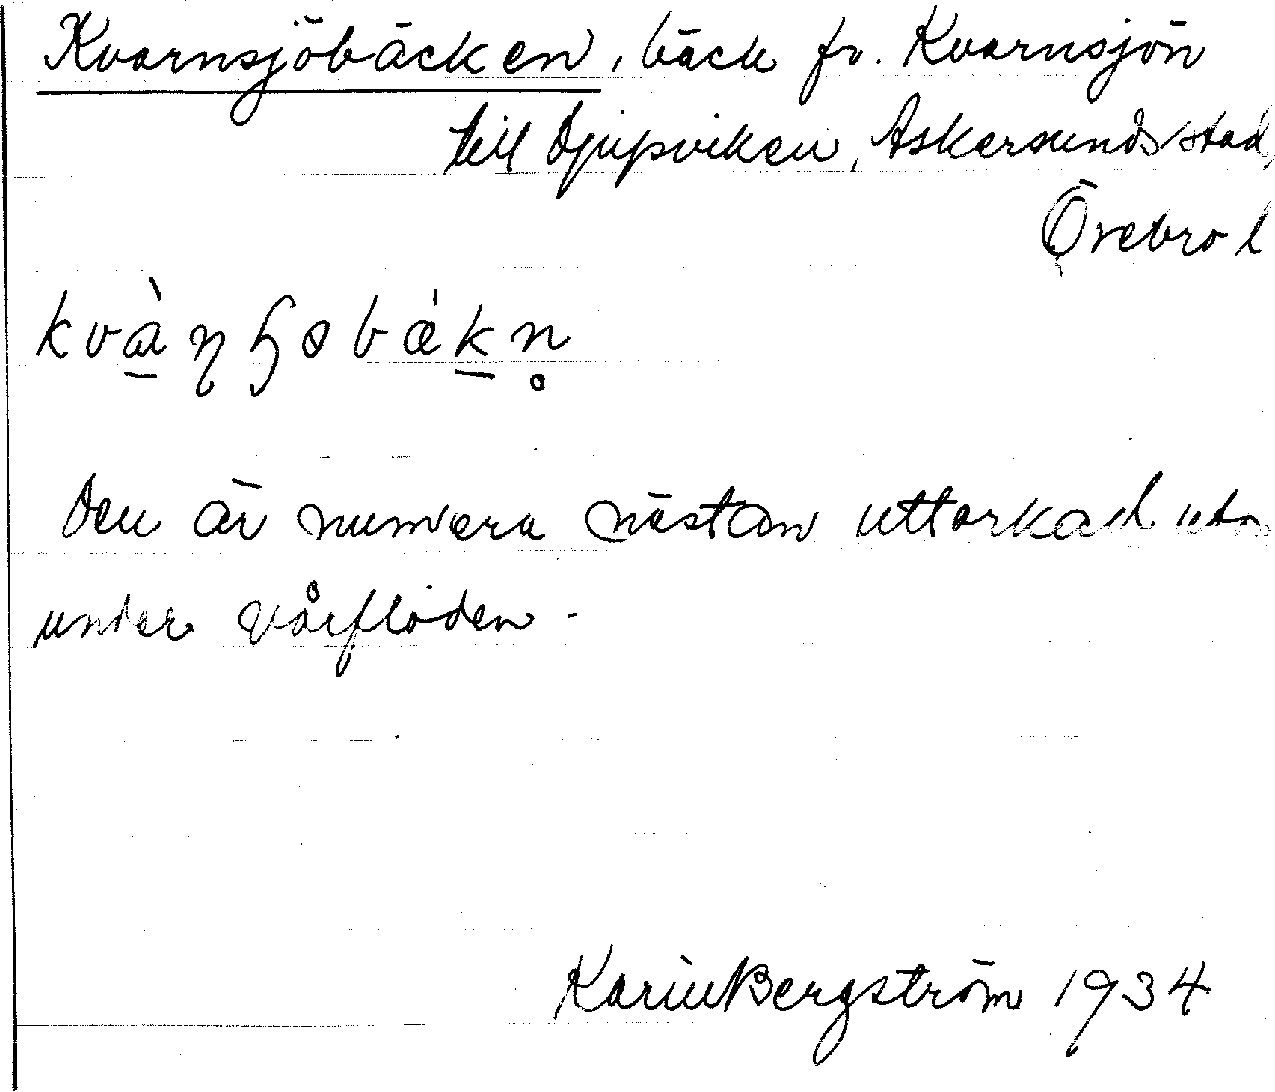 Kvarnsjöbäcken, bäck fr. Kvarnsjön
till Djupviken, Askersunds stad,
Örebro l
kvàɳɧobákn̥
Den är numera nästan uttorkad utom
under vårfloden.
Karin Bergström 1934